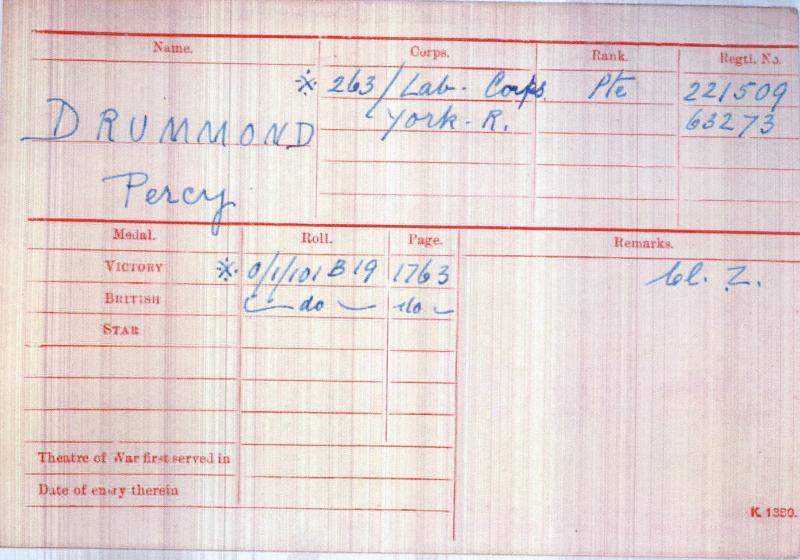 Name. Corps. Rank. Regtl. No.
※ 263/Lab. Corps. Pte 221509
York. R. 63273
DRUMMOND
Percy
Medal. Roll. Page. Remarks.
VICTORY ※ 0/1/101 B 19 1763 Cl. Z.
BRITISH do do
STAR
Theatre of War first served in
Date of entry therein
K. 1380.